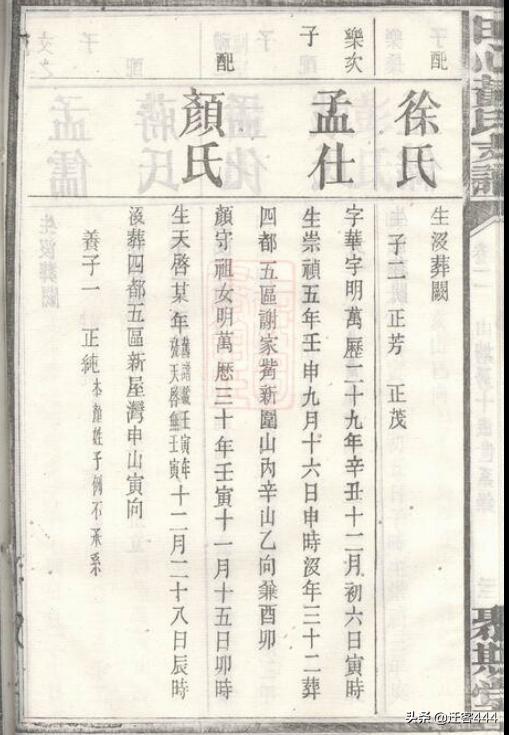 配
徐氏
生沒葬闕
子二 正芳 正茂
樂次子
孟仕
字華宇明萬歷二十九年辛丑十二月初六日寅時
生崇禎五年壬申九月十六日申時沒年三十二葬
四都五區謝家新圍山內辛山乙向兼酉卯
配
顏氏
顏守祖女明萬歷三十年壬寅十一月十五日卯時
生天啓某年舊譜載壬寅年天啓無壬寅十二月二十八日辰時
沒葬四都五區新屋灣申山寅向
養子一 正純本姓子例不承系
三
頭条 @迁客444